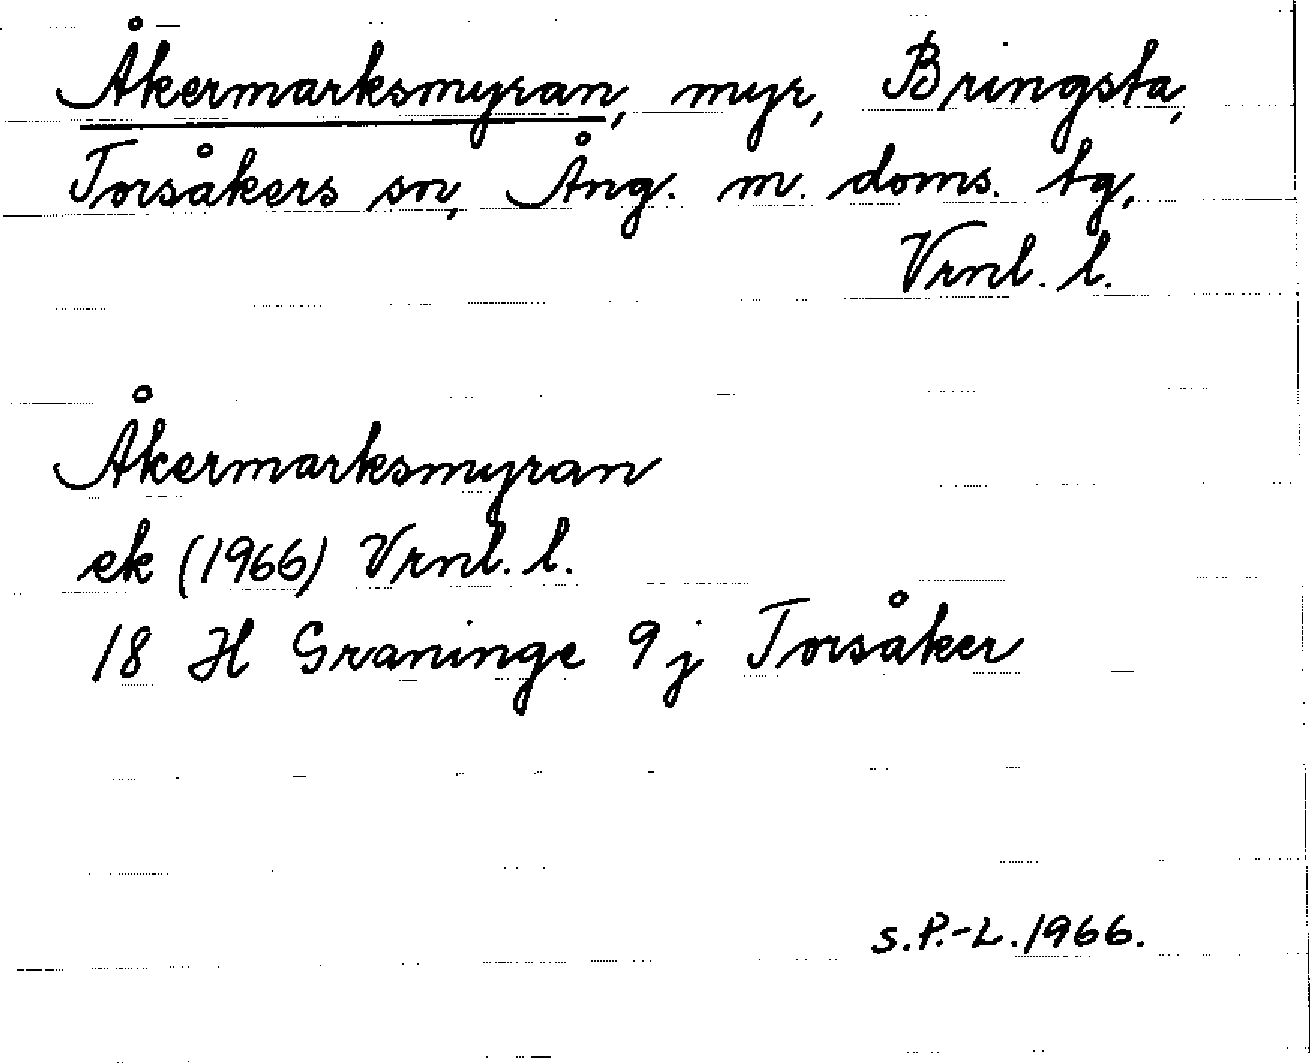 Åkermarksmyran, myr, Bringsta,
Torsåkers sn, Ång. m. doms. tg,
Vrnl. l.
Åkermarksmyran
ek (1966) Vrnl. l.
18 H Graninge 9j Torsåker
s.P.-L.1966.